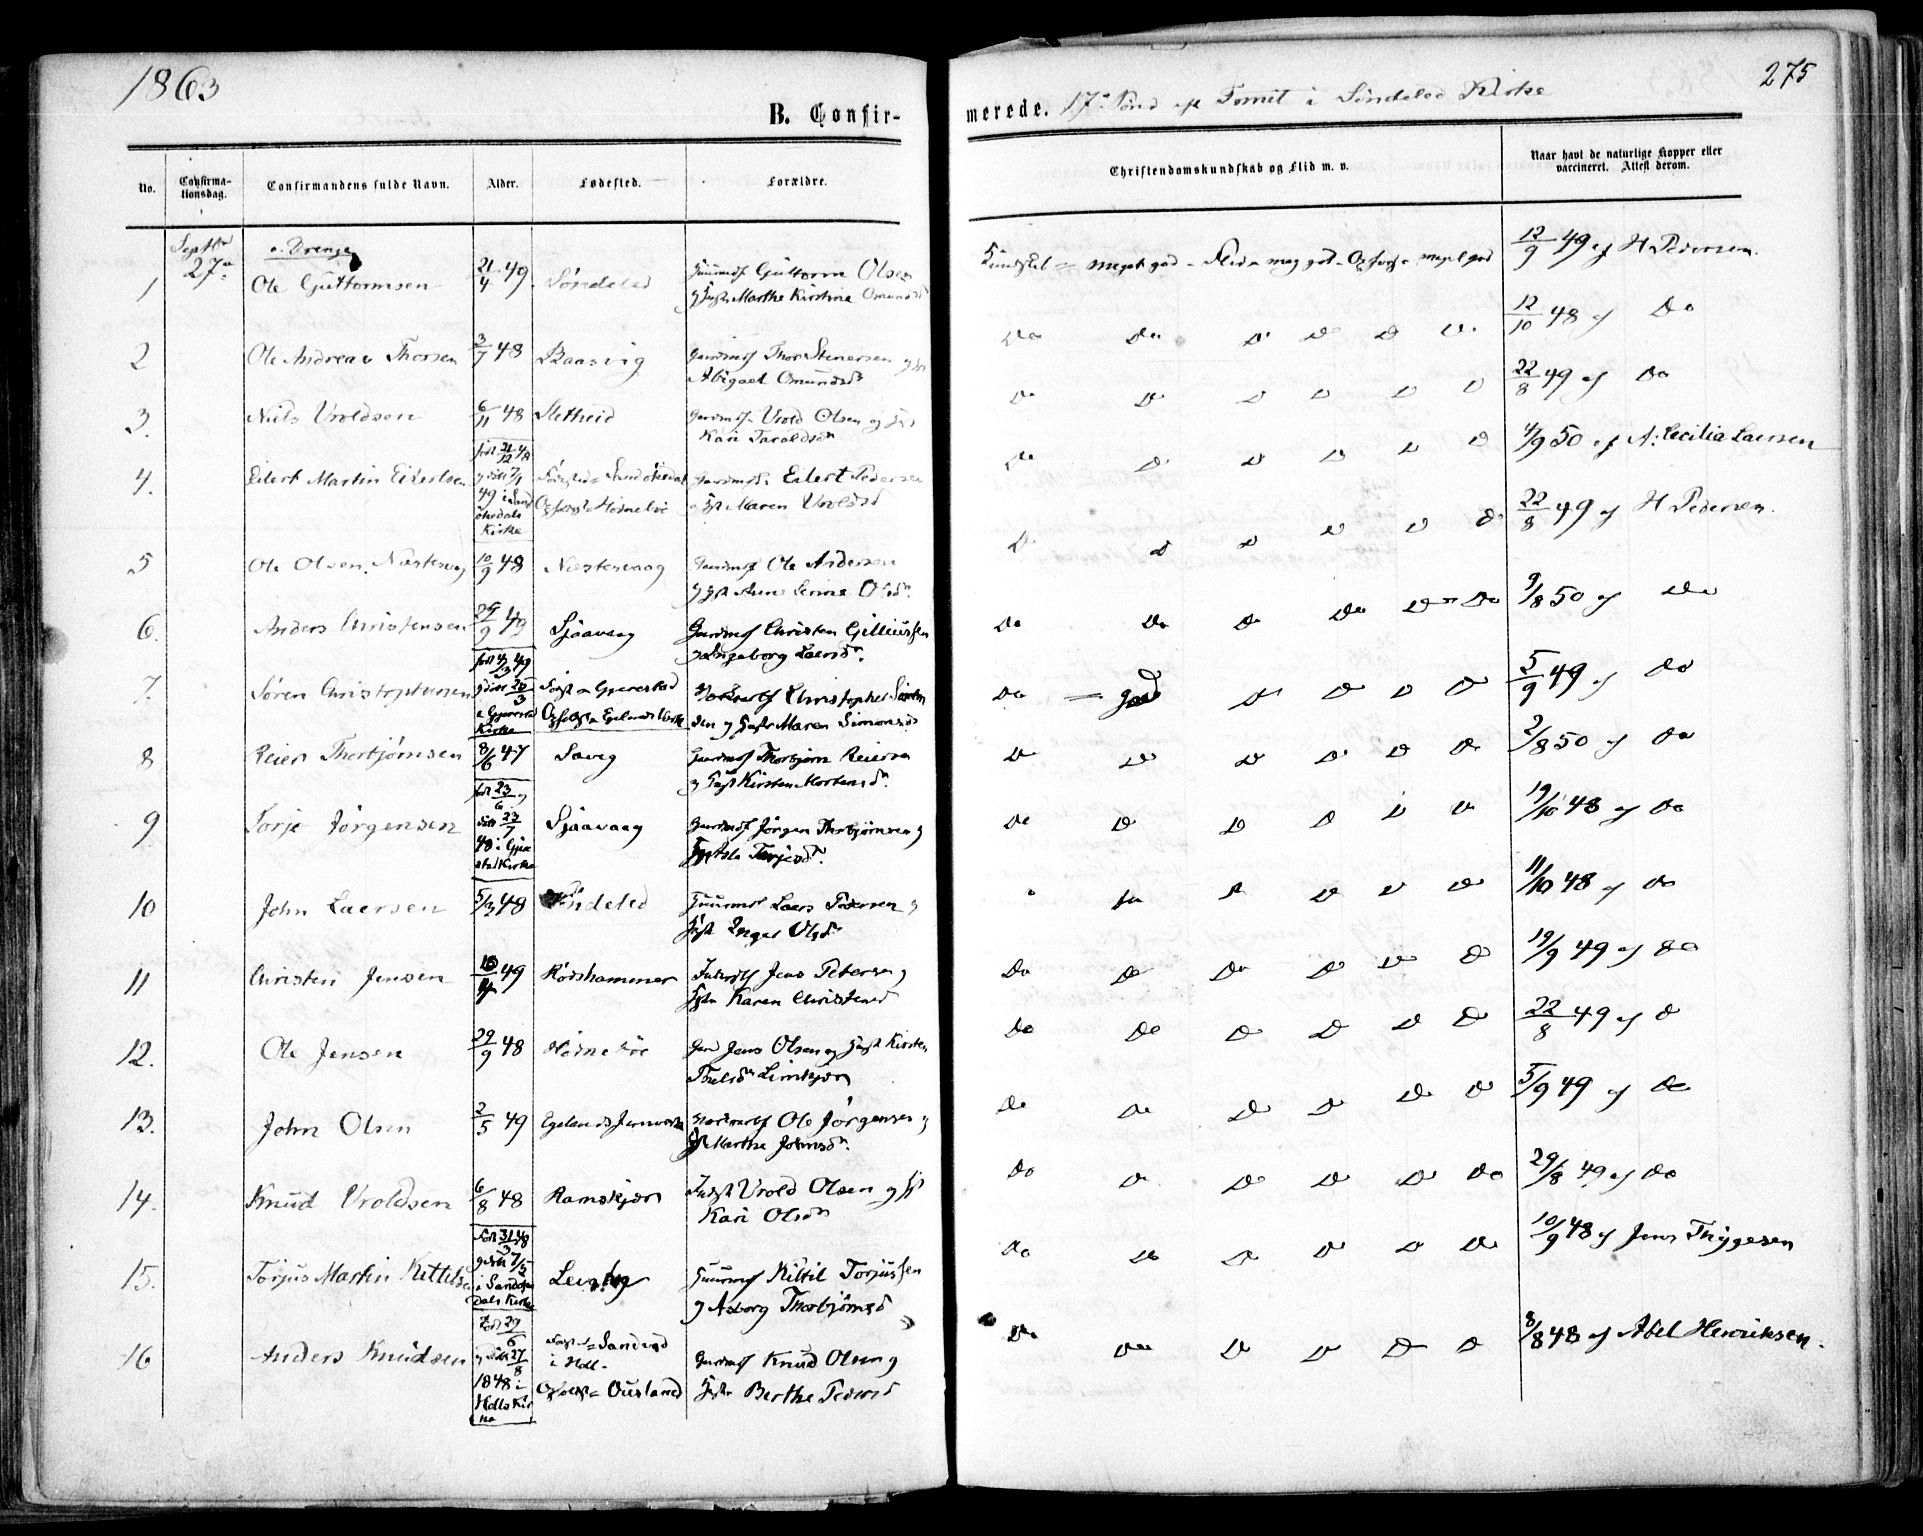 1863
275
B. Confir-
merede. 17de Sønd eft Trinit i Søndeled Kirke
No.
Confirma-
tionsdag.
Confirmandens fulde Navn.
Alder.
Fødested.
Forældre.
Christendomskundskab og Flid m. v.
Naar havt de naturlige Kopper eller
vaccineret. Attest derom.
Septbr
27de
a. Drenge
1 Ole Guttormsen 21/4 49 Søndeled Guttorm Olsen
Marthe Kirstine Omundsd
Kundskab meget god - Flid meg god - Opførs meget god 12/9 49 af H Pedersen
2 Ole Andreas Thorsen 3/7 48 Baasvig Gaardmd Thor Stenersen
Abigael Omundsd
Do Do Do Do Do Do 12/10 48 af Do
3. Niels Vroldsen 6/11 48 Sletheid Gaardmd Vrold Olsen og
Kari Taraldsdr
Do Do Do Do Do Do 22/8 49 af Do
4. Eilert Martin Eilertsen født 21/12 48
og døbt 7/1
49 i Sand
økedals
Kirke
Fødested = Sandøkedal
Opfost = Hødnebø
Gaardmd Eilert Pedersen
Maren Vroldsd
Do Do Do Do Do Do 4/9 50 af A: Cecilia Laersen
5 Ole Olsen Næstesvag 10/9 48 Næstesvaag Gaardmd Ole Andersen
og Anne Olsdr
Do Do Do Do Do Do 22/8 49 af H Pedersen.
6. Anders Christensen 29/9 49 Sjøavaag Gaardmd Christen Gjelliussen
og Ingeborg Laersdr.
Do Do Do Do Do Do 9/8 50 af Do
7. Søren Christophersen født 4/3 49
døbt 25/3
i Gjerestad
Kirke
Fødst = Gjerestad
Opfost = Egelands Værk
Christopher
sen og Maren Simonsd
Do = god Do Do Do Do 5/9 49 af Do
8 Reier Thorbjørnsen 8/6 47 Saveg Gaardmd Thorbjørn Reiersen
og Kirsten Mortensdr.
Do Do Do Do Do Do 2/8 50 af Do
9. Torje Jørgensen født 23/6 og
døbt 23/7
48 i Gjere
stad Kirke
Sjøavaag Gaardmd Jørgen Thorbjørnsen og
Torjesdr.
Do Do Do Do Do Do 19/10 48 af Do
10 John Laersen 5/12 48 Søndeled Laers Pedersen og
Inger Olsdr
Do Do Do Do Do 11/10 48 af Do
11 Christen Jensen 10/4 49 Rødshammer Jens Petersen og
Karen Christensd
Do Do Do Do Do Do 19/9 49 af Do
12. Ole Jensen 29/9 48 Hødnebøe Jens Olsen og Kirsten
Do Do Do Do Do Do 22/8 49 af Do
13. John Olsen 2/5 49 Egelands Jernværk Ole Jørgensen og
Marthe Johnsdr.
Do Do Do Do Do Do 5/9 49 af Do
14. Knud Vroldsen 6/8 48 Ramskjær Vrold Olsen og
Kari Olsdr
Do Do Do Do Do Do 29/8 49 af Do
15. Torjus Martin Kittelsen født 31/3 48
døbt 7/5
i Sandøke
dals Kirke
Kittil Torjussen
og Asborg Thorbjørnsd
Do Do Do Do Do Do 10/9 48 af Jens Thygesen
16 Anders Knudsen født 29/6
og døbt 27/8
1848 i
Holls Kir
ke
Fødst = Sandvad
i Holl.
Opfost = Ousland
Gaardmd Knud Olsen og
Berthe Pedersd
Do Do Do Do Do Do 8/8 48 af Abel Henriksen.